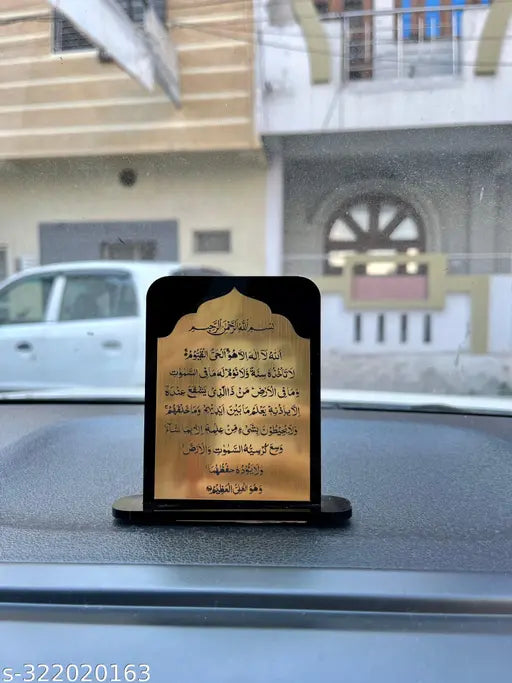 بِسْمِ اللهِ الرَّحْمٰنِ الرَّحِيْمِ
اَللهُ لَآ اِلٰهَ اِلَّا هُوَ اَلْحَيُّ الْقَيُّوْمُ
لَا تَاْخُذُهٗ سِنَةٌ وَّلَا نَوْمٌ لَهٗ مَا فِى السَّمٰوٰتِ
وَمَا فِى الْاَرْضِ مَنْ ذَا الَّذِىْ يَشْفَعُ عِنْدَهٗ
اِلَّا بِاِذْنِهٖ يَعْلَمُ مَا بَيْنَ اَيْدِيْهِمْ وَمَا خَلْفَهُمْ
وَلَا يُحِيْطُوْنَ بِشَىْءٍ مِّنْ عِلْمِهٖٓ اِلَّا بِمَا شَآءَ
وَسِعَ كُرْسِيُّهُ السَّمٰوٰتِ وَالْاَرْضَ
وَلَا يَئُوْدُهٗ حِفْظُهُمَا
وَهُوَ الْعَلِىُّ الْعَظِيْمُ
s-322020163